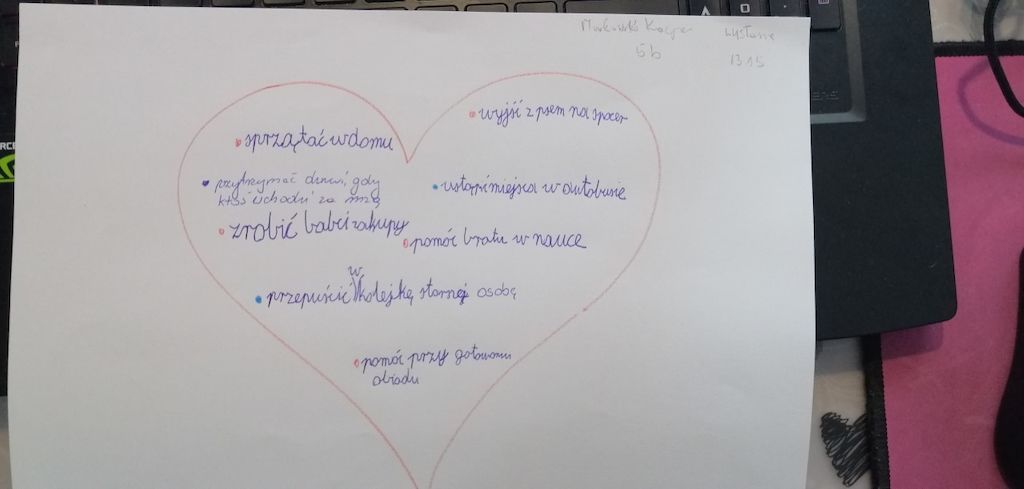 wysłanie
5b
1315
wyjść z psem na spacer
sprzątać w domu
przytrzymać drzwi, gdy
ktoś wchodzi za mną
ustąpić miejsca w autobusie
zrobić babci zakupy
pomóc bratu w nauce
przepuścić w kolejkę starszej osobę
pomóc przy gotowaniu
obiadu